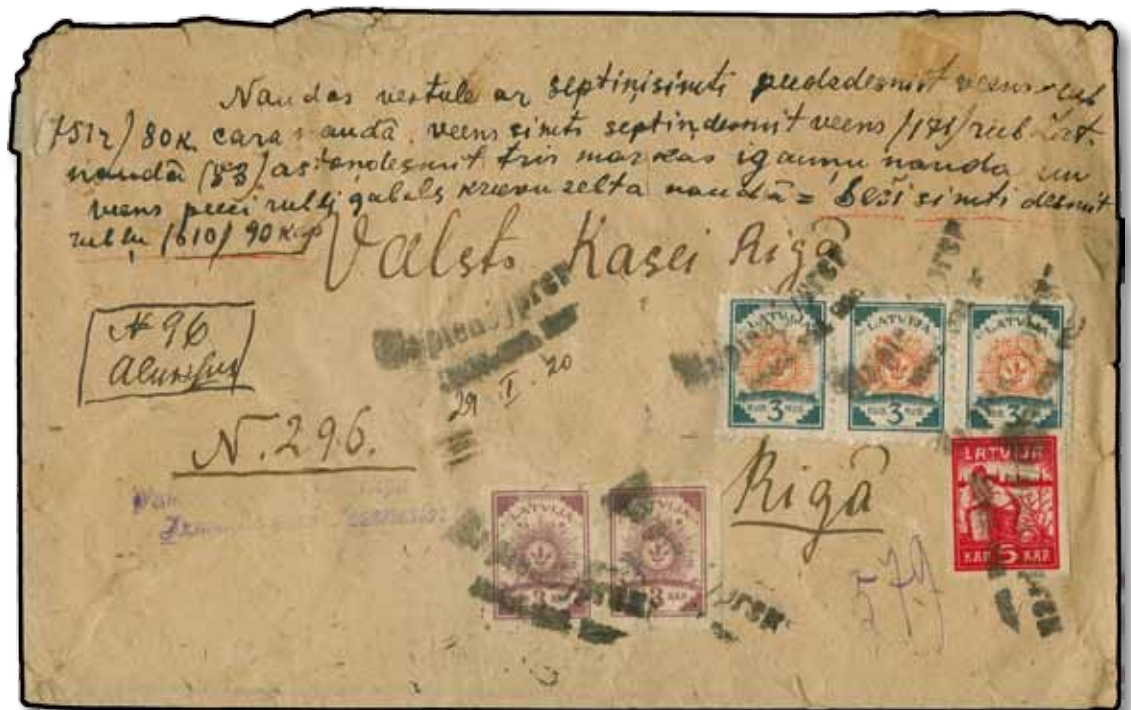 Naudas vestule ar septiņisimti peecdesmit veens rub
(751r) 80 K cara naudā. veens simts septiņdesmit veens /171/ rub Lat.
naudā (83) astoņdesmit trīs markas igauņu nauda un
veens peeci rubļi gabals Kreevu zelta naudā = Seši simti desmit
rubļu /610/ 90 Kap
Valsts Kasei Rigā
№ 96
29 I 20
N. 296.
LATVIJA LATVIJA LATVIJA
3 3 3
Rigā
LATVIJA
KAP. 5 KAP.
LATVIJA LATVIJA
3 KAP. 3 KAP.
579